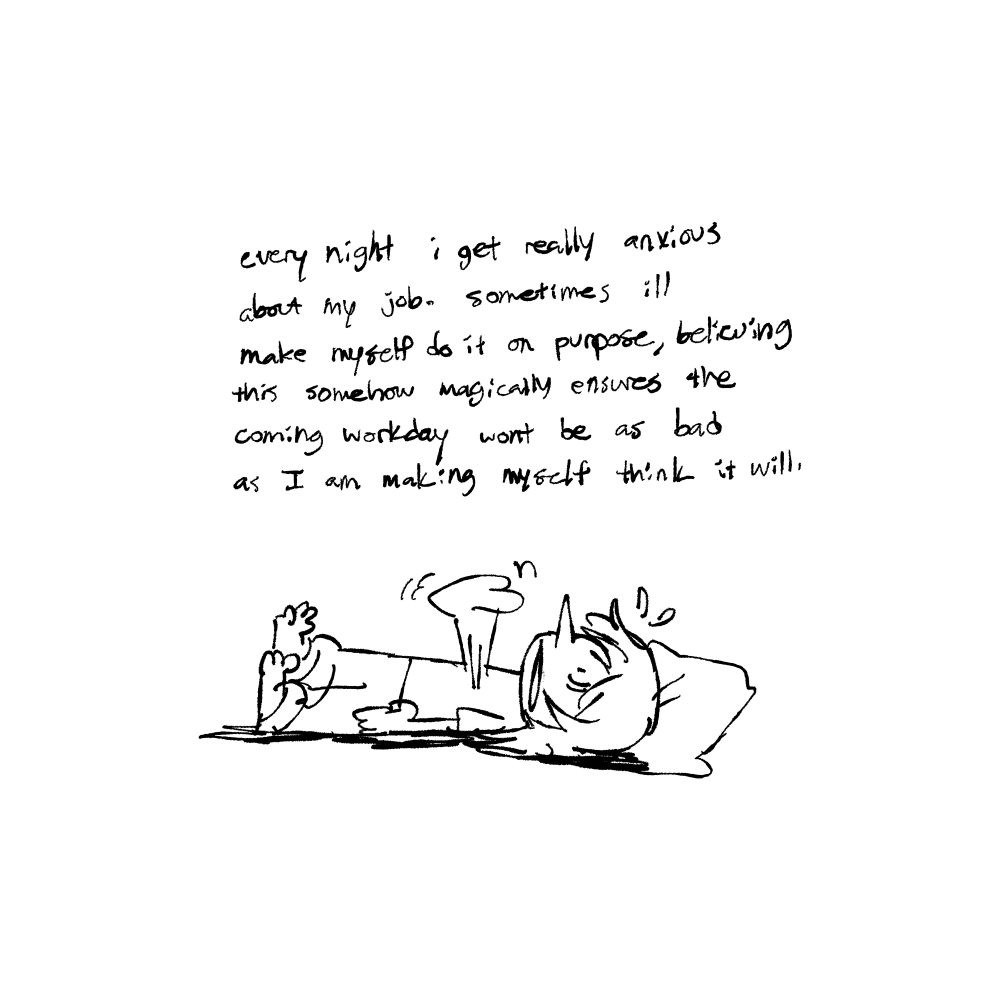 every night i get really anxious
about my job. sometimes ill
make myself do it on purpose, believing
this somehow magically ensures the
coming workday wont be as bad
as I am making myself think it will.